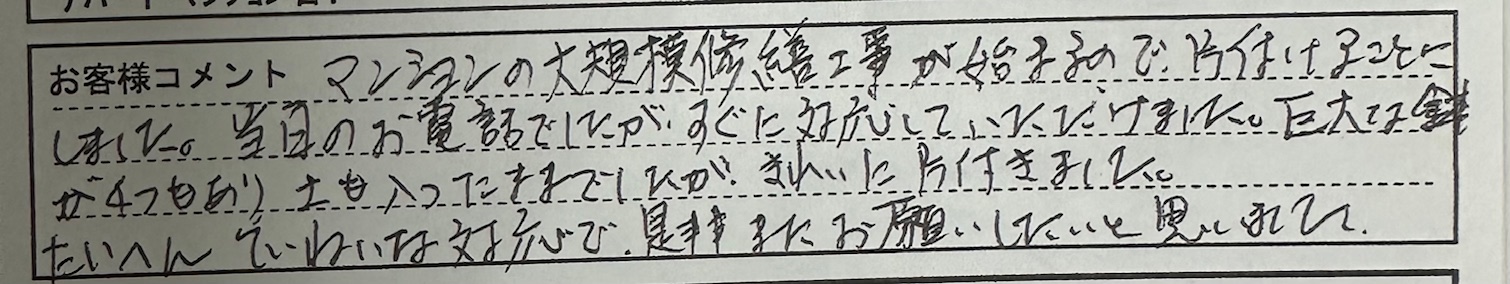 お客様コメント マンションの大規模修繕工事が始まるので、片付けることに
しました。当日のお電話でしたが、すぐに対応していただけました。巨大な鉢
が4つもあり土も入ったままでしたが、きれいに片付きました。
たいへんていねいな対応で、是非またお願いしたいと思いました。